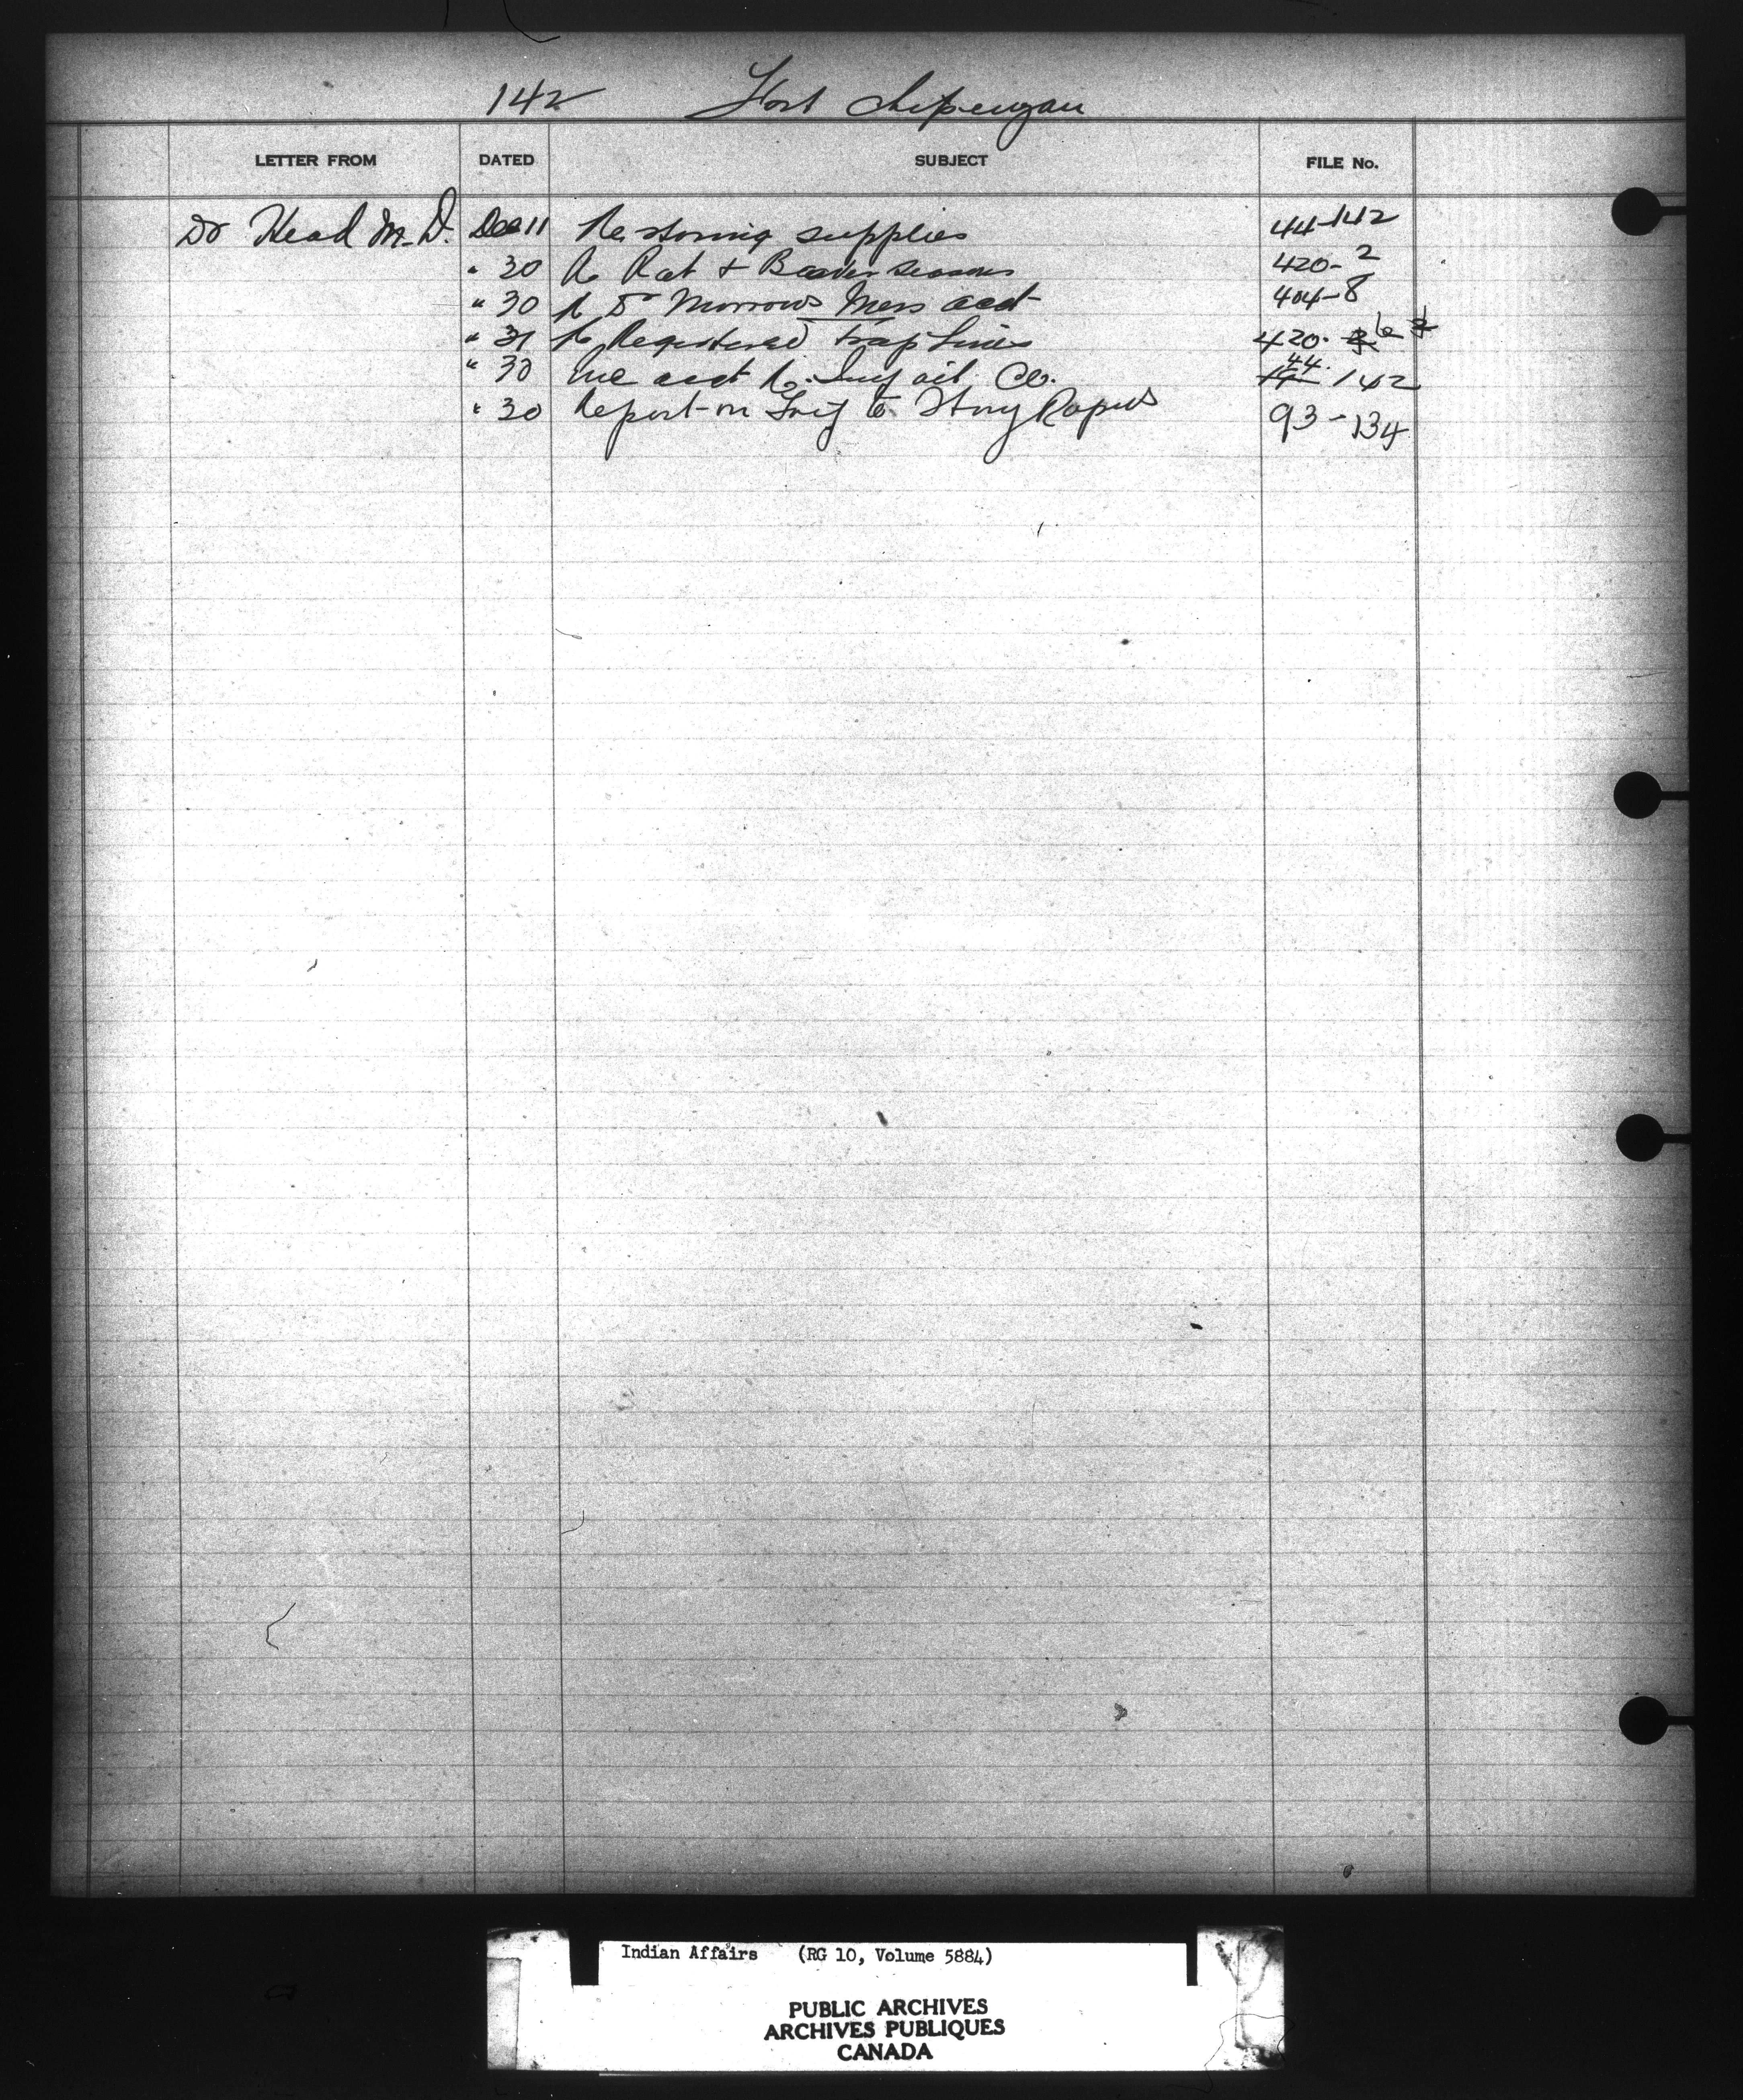 142 Fort Chipewyan
LETTER FROM DATED SUBJECT FILE No.
Dr Head M.D. Dec 11 Re storing supplies 44-142
" 30 Re Rat & Beaver seasons 420-2
" 30 Re Dr Morrows Mess acct 404-8
" 31 Re Registered trap Lines 420-
" 30 acct Re. Imp oil Co. 44 142
" 30 Report on Trip to Stony Rapids 93-134
Indian Affairs (RG 10, Volume 5884)
PUBLIC ARCHIVES
ARCHIVES PUBLIQUES
CANADA